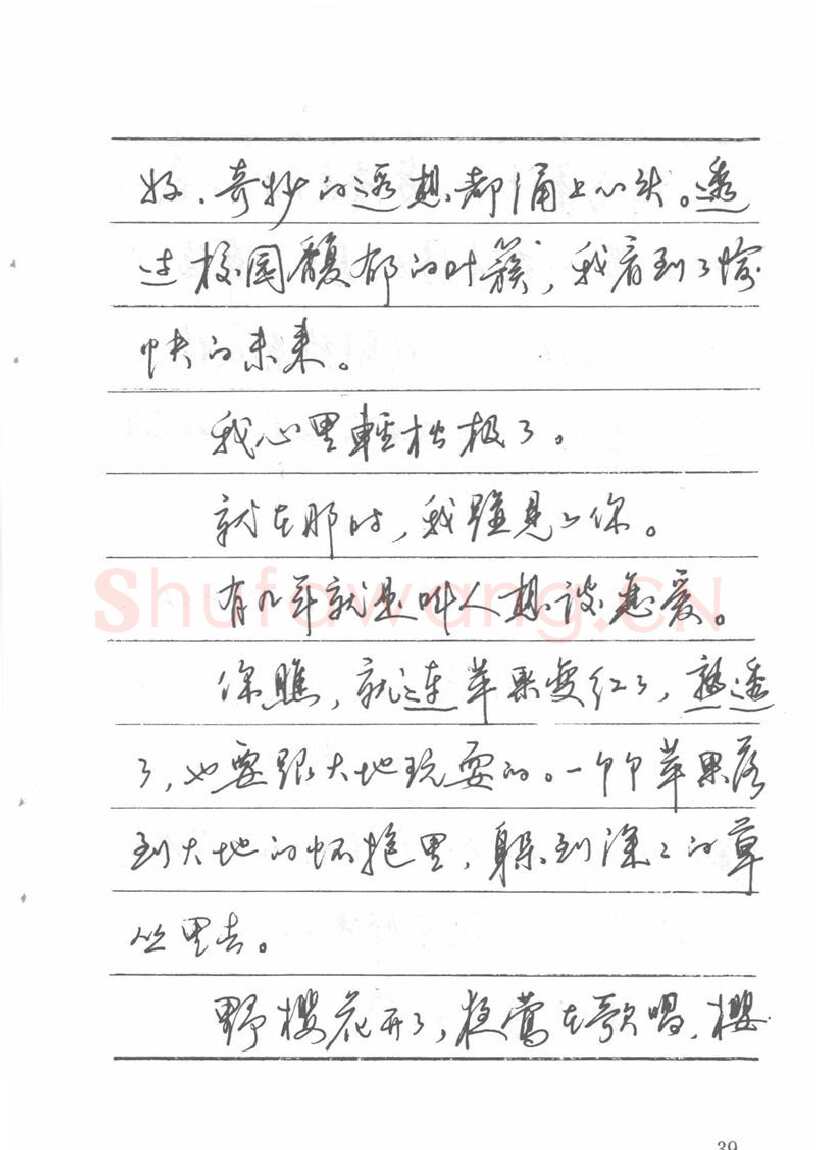 好、奇妙的遐想都涌上心头。透
过校园馥郁的叶簇，我看到了愉
快的未来。
我心里輕松极了。
就在那时，我碰見了你。
有几年就是叫人想谈恋爱。
你瞧，就连苹果变红了，熟透
了，也要跟大地玩耍的。一个个苹果落
到大地的怀抱里，躲到深深的草
丛里去。
野樱花开了，夜莺在歌唱，樱
Shufawang.CN
39